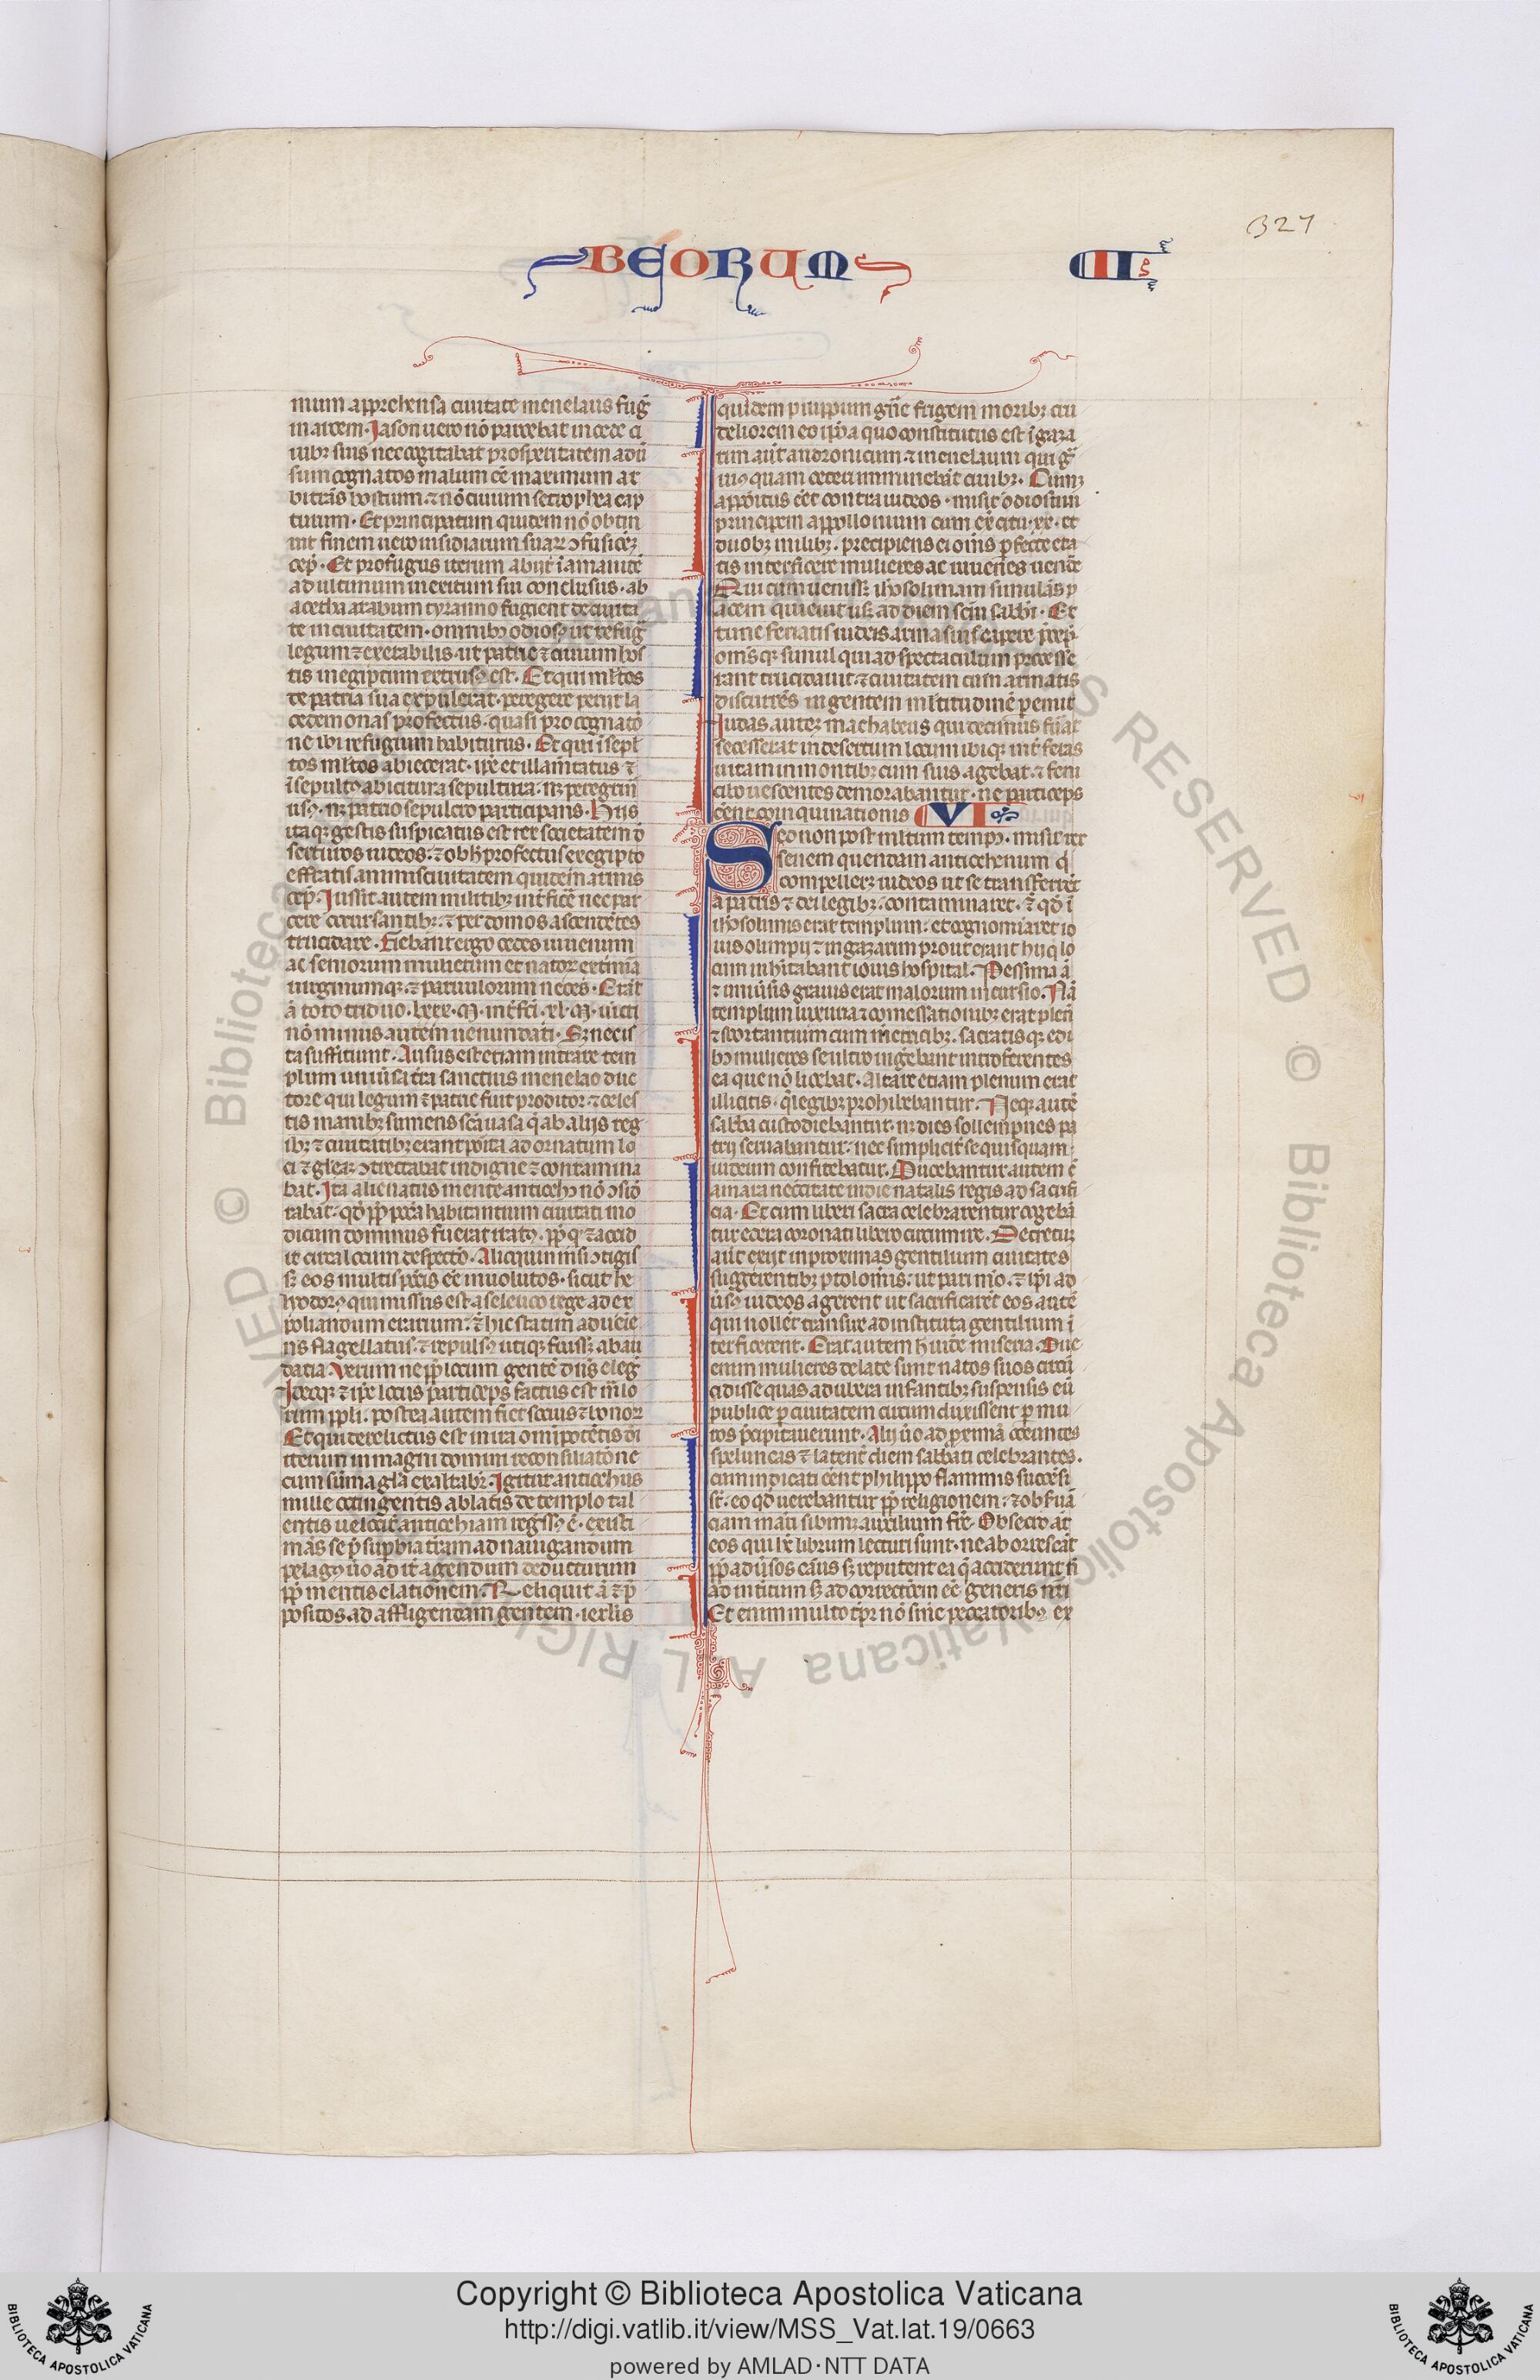 327
BEORUM
II
mum apprehensa ciuitate menelaus fug̃
in arcem. Iason uero nõ parcebat in cede ci
uibꝫ suis nec cogitabat prosperitatem aduer̃
sum cognatos malum eẽ maximum ar
bitrãs hostium ⁊ nõ ciuium se trophea cap
turum. Et principatum quidem nõ obtin
uit finem uero insidiarum suaꝝ ↄfusioẽꝫ
cep̃. Et profugus iterum abijt ĩ amanitẽ
ad ultimum in exitium sui conclusus. ab
aretha arabum tyranno fugient de ciuita
te in ciuitatem. omnibꝰ odiosꝰ ut refug̃
legum ⁊ execrabilis. ut patrie ⁊ ciuium hos
tis in egiptum extrusꝰ est. Et qui ml̃tos
de patria sua expulerat. peregere perijt la
cedemonas profectus. quasi pro cognatõ
ne ibi refugium habiturus. Et qui ĩsepl̃
tos ml̃tos abiecerat. ip̃e et illam̃tatus ⁊
ĩsepultꝰ abicitur a sepultura: nꝫ peregrin̄
usꝰ. nꝫ patrio sepulcro participans. Hijs
itaqꝫ gestis suspicatus est rex societatem d̃
serturos iudeos. ⁊ ob h̃ profectus ex egipto
efferatis animis ciuitatem quidem armis
cep̃. Iussit autem militibꝫ int̃ficẽ nec par
cere occursantibꝫ. ⁊ per domos ascendẽtes
trucidare. Fiebant ergo cedes iuuenum
ac seniorum mulierum et natoꝝ extiminã
uirginumqꝫ. ⁊ paruulorum neces. Erãt
ã toto triduo. lxxx. m̃. int̃fci. xl. m̃. uicti
nõ minus autem uenundati. Sꝫ nec is
ta sufficiunt. Ausus est etiam intrare tem
plum uniũsa t̃ra sanctius menelao duc
tore qui legum ⁊ patrie fuit proditor. ⁊ celes
tis manibꝫ sumens sc̃a uasa q̃ ab alijs reg
ibꝫ ⁊ ciuitatibꝫ erant põita ad ornatum lo
ci ⁊ gl̃eaꝝ ↄtrectabat indigne ⁊ contamina
bat. Ita alienatus mente antiochꝰ nõ ↄsid̃
rabat. qd̃ pp̃ pecc̃a habitantium ciuitati mo
dicum dominus fuerat iratꝰ. pp̃ qd̃ ⁊ accid
it circa locum despectõ. Alioquin nisi ↄtigis
sꝫ eos multis pec̃is eẽ inuolutos. sicut he
lyodorꝰ qui missus est a seleuco rege ad ex
poliandum erarium. ⁊ hic statim adueie
ns flagellatus. ⁊ repulsꝰ utiqꝫ fuissꝫ ab au
dacia. Verum ne pp̃ locum gentẽ dñs eleg̃
Ideoqꝫ ⁊ ip̃e locus particeps factus est m̃lo
rum pp̃li. postea autem fiet socius ⁊ bonoꝝ
Et qui derelictus est in ira omipotẽtis d̃i
iterum in magni domini reconsiliatõne
cum sũma gl̃a exaltabr̃. Igitur antiochus
mille octingentis ablatis de templo tal
entis uelocit̃ antiochiam regressꝰ ẽ. existi
mãs se p̃ supbia t̃ram ad nauigandum
pelagꝰ ũo ad it̃ agendum deducturum
pp̃ mentis elationem. Reliquit ã ⁊ p̃
positos ad affligendam gentem. ierl̃is
quidem philippum gñe frigem moribꝫ cru
deliorem eo ip̃o a quo constitutus est ĩ gara
rim aũt andronicum ⁊ menelaum qui g̃ͣ
uiꝰ quam ceteri imminebãt ciuibꝫ. Cumqꝫ
appõitus eẽt contra iudeos. misit odiosum
principem appollonium cum exercitu. xx. et
duobꝫ milibꝫ. precipiens ei oms̃ pfecte eta
tis interficere mulieres ac iuuenes uende
Qui cum uenissꝫ ih̃osolimam simulãs p
acem quieuit usqꝫ ad diem sc̃m sabb̃i. Et
tunc feriatis iudeis arma suis capere p̃cep̃.
oms̃qꝫ simul qui ad spectaculum processe
rant trucidauit. ⁊ ciuitatem cum armatis
discurrẽs ingentem ml̃titudinẽ peremit
Iudas autem machabeus qui decimus fũat
secesserat in desertum locum ibiqꝫ int̃ feras
uitam in montibꝫ cum suis agebat. ⁊ feni
cibo uescentes demorabantur. ne particeps
eẽnt coinquinationis VI
Sed non post ml̃tum tempꝰ. misit rex
senem quendam antiochenum q̃
compelleret iudeos ut se transferret̃
a patrijs ⁊ dei legibꝫ. contaminaret. ⁊ qd̃ ĩ
ih̃osolimis erat templum. et cognomiaret io
uis olimpij ⁊ in gazarim prout erant hij q̃ lo
cum inhitabant iouis hospital̃. Pessima ã
⁊ uniũsis grauis erat malorum incursio. Nã
templum luxuria ⁊ comessationibꝫ erat plenũ
⁊ scortantium cum m̃etricibꝫ. sacratisqꝫ edi
bꝰ mulieres se ultro ing̃ebant intro ferentes
ea que nõ licebat. Altare etiam plenum erat
illicitis. q̃ legibꝫ prohibebantur. Neqꝫ autẽ
sabbata custodiebantur. nꝫ dies sollempnes pa
trij seruabantur. nec simplicit̃ se quisquam
iudeum confitebatur. Ducebantur autem c̃
amara neccitate in die natalis regis ad sacrifi
cia. Et cum liberi sacra celebrarentur cogebã
tur edera coronati libero circumire. Decretum
aũt exijt in proximas gentilium ciuitates
suggerentibꝫ ptolomis. ut pari mõ. ⁊ ip̃i ad
ũsꝰ iudeos agerent ut sacrificarẽt eos autẽ
qui nollẽt transire ad instituta gentilium ĩ
terficerent. Erat autem h̃ uide miseria. Due
enim mulieres delate sunt natos suos circũ
cidisse quas ad ubera infantibꝫ suspensis cũ
publice p ciuitatem circum duxissent p mu
ros p̃cipitauerunt. Alij ũo ad proximã coeuntes
speluncas ⁊ latent̃ diem sabbati celebrantes.
cum indicati eẽnt philippo flammis succẽsi
st̃. eo qd̃ uerebantur pp̃ religionem. ⁊ obseruã
ciam manu sibimꝫ auxilium fr̃e. Obsecro aũt
eos qui h̃ librum lecturi sunt. ne abhorrescãt
pp̃ aduersos casus sꝫ reputent ea q̃ acciderunt ñ
ad int̃itum sꝫ ad correctõem eẽ generis nr̃i
Et enim multo tp̃r nõ sine peccatoribꝰ ex
Copyright © Biblioteca Apostolica Vaticana
http://digi.vatlib.it/view/MSS_Vat.lat.19/0663
powered by AMLAD·NTT DATA
BIBLIOTECA APOSTOLICA VATICANA
BIBLIOTECA APOSTOLICA VATICANA